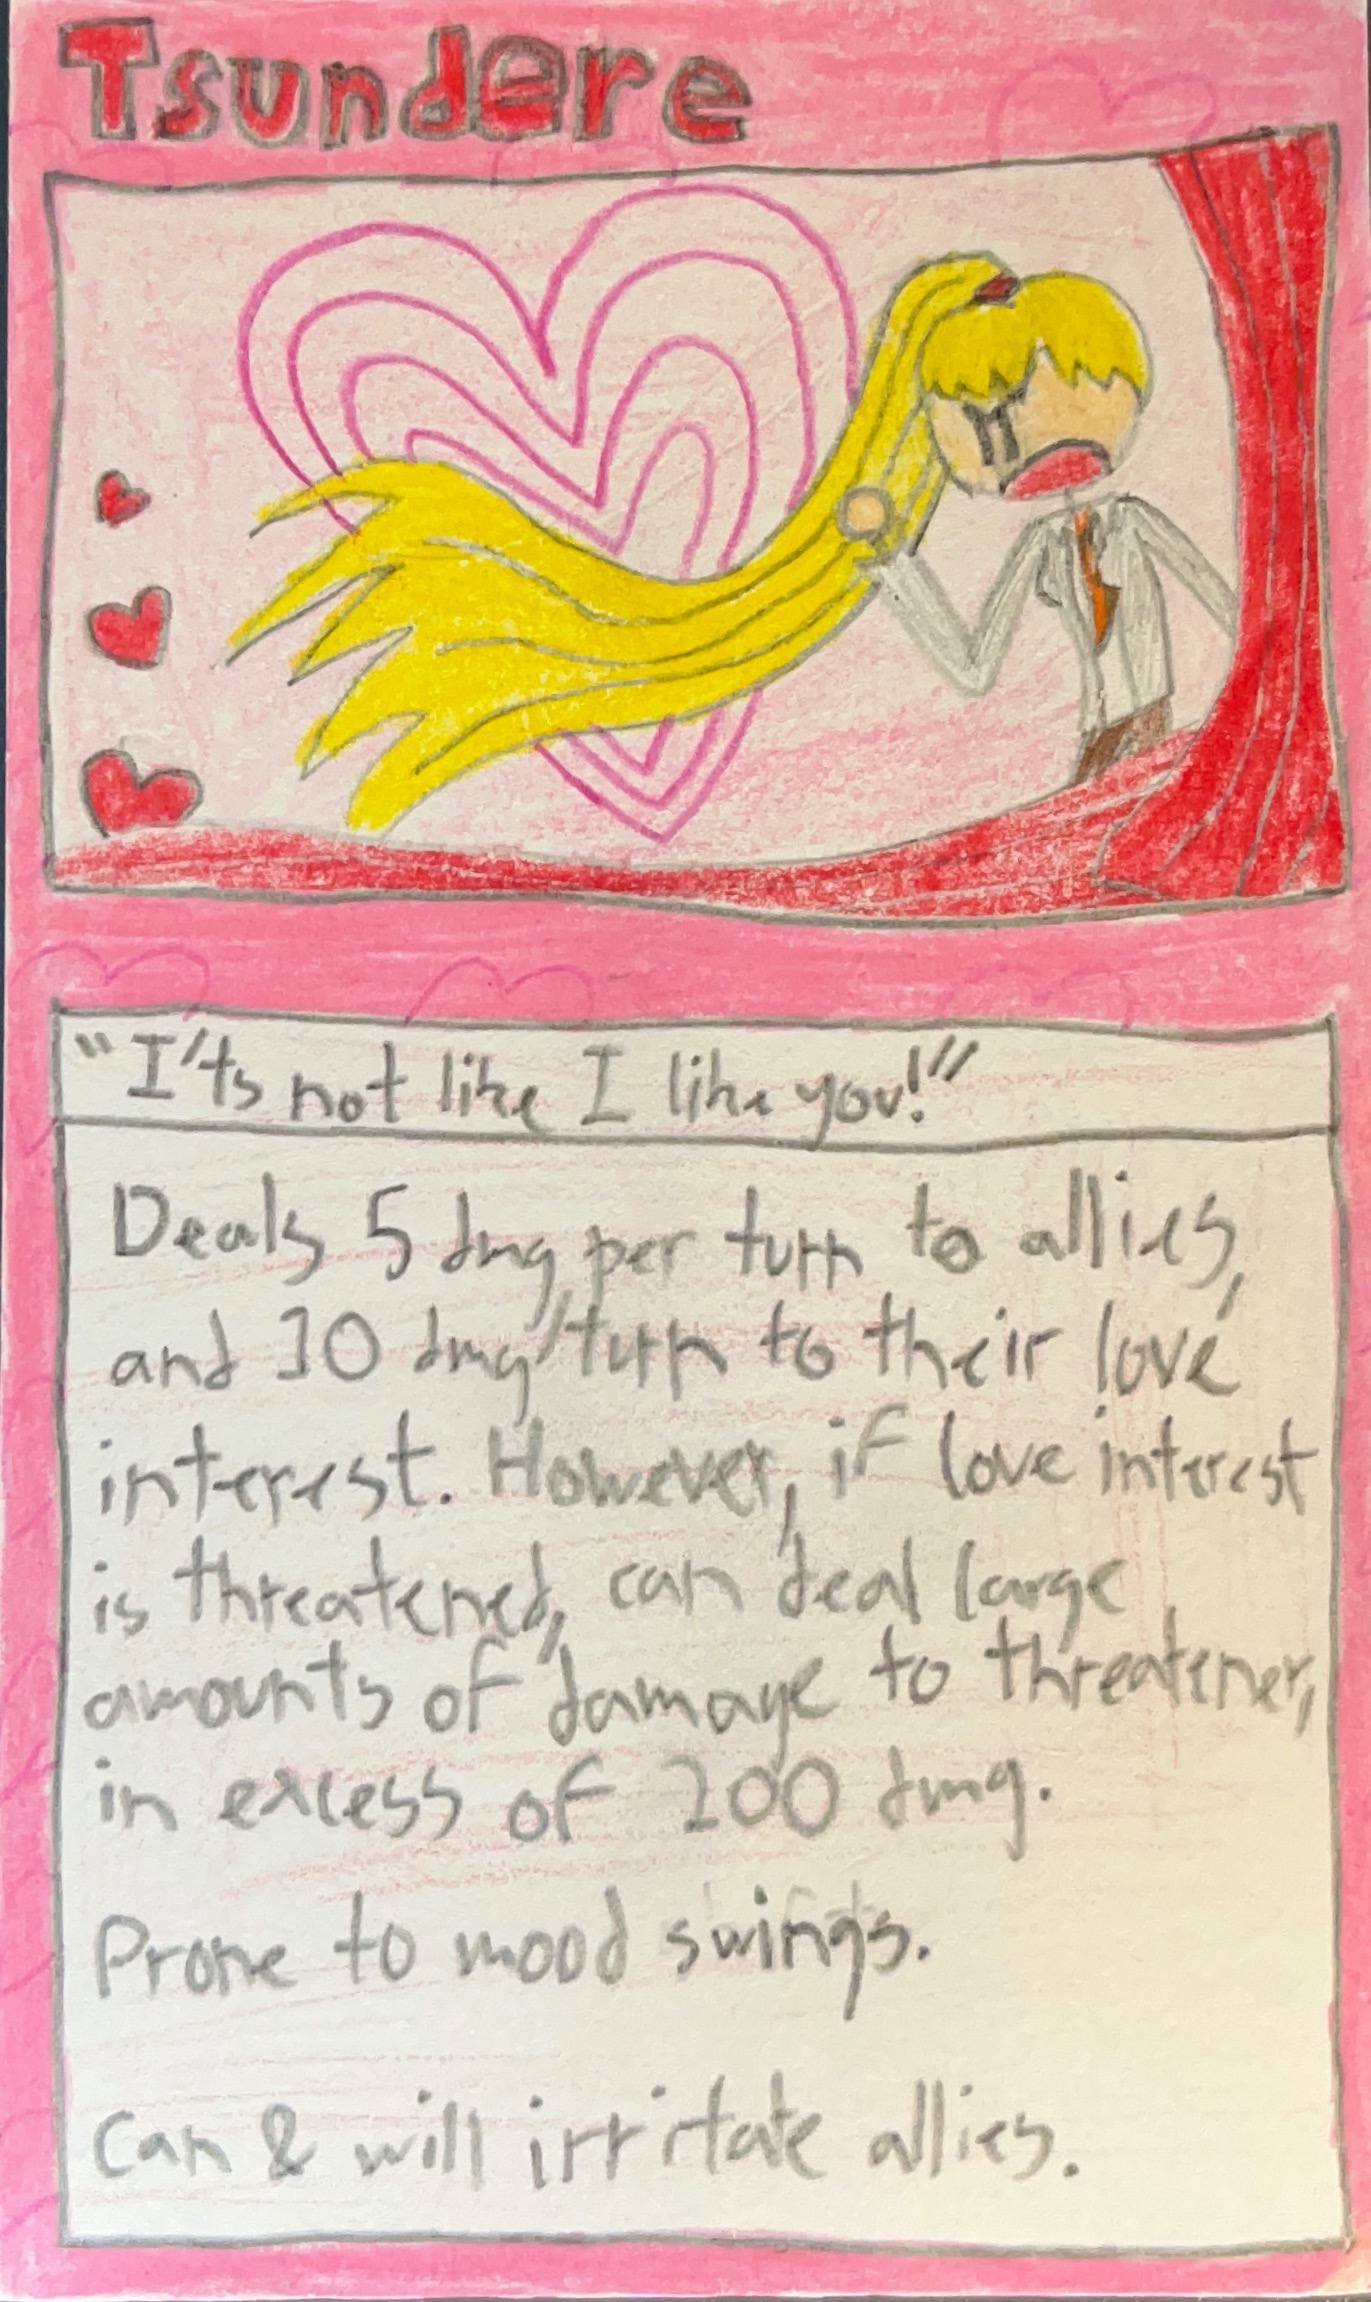 Tsundere
"I'ts not like I like you!"
Deals 5 dmg per turn to allies,
and 10 dmg/turn to their love
interest. However, if love interest
is threatened, can deal large
amounts of damage to threatener,
in excess of 200 dmg.
Prone to mood swings.
Can & will irritate allies.